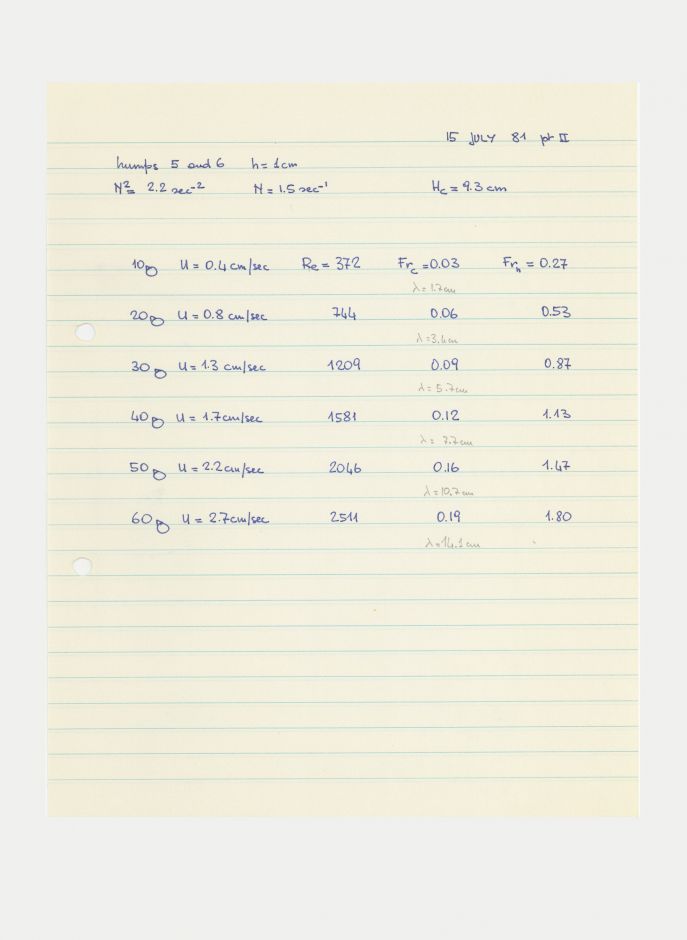 15 JULY 81 pt II
humps 5 and 6 h = 1 cm
N² = 2.2 sec⁻² N = 1.5 sec⁻¹ Hc = 9.3 cm
10 U = 0.4 cm/sec Re = 372 Frc = 0.03 Frh = 0.27
λ = 1.7cm
20 U = 0.8 cm/sec 744 0.06 0.53
λ = 3.4cm
30 U = 1.3 cm/sec 1209 0.09 0.87
λ = 5.7cm
40 U = 1.7cm/sec 1581 0.12 1.13
λ = 7.7cm
50 U = 2.2cm/sec 2046 0.16 1.47
λ = 10.7cm
60 U = 2.7cm/sec 2511 0.19 1.80
λ = 14.1cm